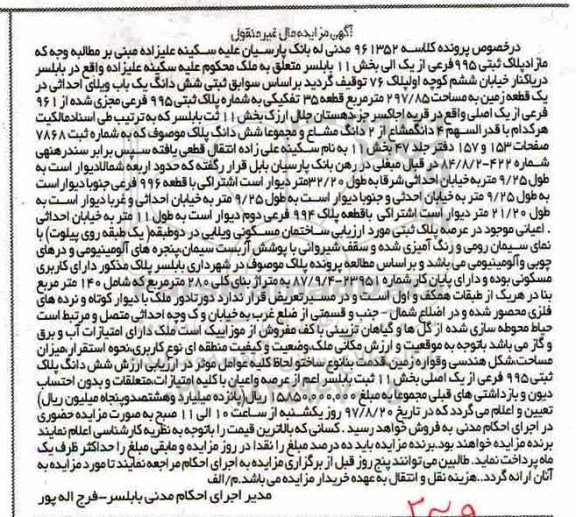 آگهی مزایده مال غیرمنقول
درخصوص پرونده کلاسه ۹۶۱۳۵۲ مدنی له بانک پارسیان علیه سکینه علیزاده مبنی بر مطالبه وجه که
مازادپلاک ثبتی ۹۹۵فرعی از یک الی بخش ۱۱ بابلسر متعلق به ملک محکوم علیه سکینه علیزاده واقع در بابلسر
دریاکنار خیابان ششم کوچه اولپلاک ۷۶ توقیف گردید براساس سوابق ثبتی شش دانگ یک باب ویلای احداثی در
یک قطعه زمین به مساحت۲۹۷/۸۵ مترمربع قطعه۳۵ تفکیکی به شماره پلاک ثبتی ۹۹۵ فرعی مجزی شده از ۹۶۱
فرعی از یک اصلی واقع در قریه اجاکسر جزدهستان جلال ازرک بخش ۱۱ ثبت بابلسر که به ترتیب طی اسنادمالکیت
هرکدام با قدرالسهم ۴ دانگمشاع از ۲ دانگ مشاع و مجموعا شش دانگ پلاک موصوف که به شماره ثبت ۷۸۶۸
صفحات۱۵۳ و ۱۵۷ دفتر جلد ۴۷ بخش ۱۱ به نام سکینه علی زاده انتقال قطعی یافته سپس برابر سندرهنی
شماره ۴۲۲-۸۴/۸/۲ در قبال مبلغی در رهن بانک پارسیان بابل قرار رگفته که حدود اربعه شمالادیوار است به
طول ۹/۲۵ متربه خیابان احداثی شرقا به طول ۳۲/۲۰متر دیوار است اشتراکی با قطعه ۹۹۶ فرعی جنوبا دیوار است
به طول ۹/۲۵ متر به خیابان احدثی و جنوبا دیوار است به طول ۹/۲۵ متر به خیابان احداثی و غربا دیوار است به
طول ۲۱/۲۰ متر دیوار است اشتراکی باقطعه پلاک ۹۹۴ فرعی دوم دیوار است به طول ۱۱ متر به خیابان احداثی
. اعیانی موجود در عرصه پلاک ثبتی مورد ارزیابی ساختمان مسکونی ویلایی در دوطبقه( یک طبقه روی پیلوت) با
نمای سیمان رومی و رنگ آمیزی شده و سقف شیروانی با پوشش آزبست سیمان،پنجره های آلومینیومی و درهای
چوبی وآلومینیومی می باشد و براساس مطالعه پرونده پلاک موصوف در شهرداری بابلسر پلاک مذکور دارای کاربری
مسکونی بوده و دارای پایان کار شماره ۲۳۹۵۱-۸۷/۹/۴به متراژ بنای کلی ۲۸۰ مترمربع که شامل ۱۴۰ متر مربع
بنا در هریک از طبقات همکف و اول است و در مسیرتعریض قرار ندارد دورتادور ملک با دیوار کوتاه و نرده های
فلزی محصور شده و در اضلاع شمال - جنب و قسمتی از ضلع غرب به خیابان و ک وچه احداثی متصل و مرتبط است
حیاط محوطه سازی شده از گل ها و گیاهان تزیینی با کف مفروش از موزاییک است ملک دارای امتیازات آب و برق
و گاز می باشد باتوجه به موقعیت و ارزش مکانی ملک،وضعیت و کیفیت منطقه ای نوع کاربری،نحوه استقرار،میزان
مساحت،شکل هندسی وقواره زمین قدمت بنانوع ساختو لحاظ کلیه عوامل موثر در ارزیابی ارزش شش دانگ پلاک
ثبتی۹۹۵ فرعی از یک اصلی بخش ۱۱ ثبت بابلسر اعم از عرصه واعیان با کلیه امتیازات،متعلقات و بدون احتساب
دیون و بازداشتی های قبلی مجموعا به مبلغ ۱۵/۸۵۰/۰۰۰/۰۰۰ ریال(پانزده میلیارد وهشتصدوپنجاه میلیون ریال)
تعیین و اعلام می گردد که در تاریخ ۹۷/۸/۲۰ روز یکشنبه از ساعت ۱۰ الی ۱۱ صبح به صورت مزایده حضوری
در اجرای احکام مدنی به فروش خواهد رسید . کسانی که بالاترین قیمت را باتوجه به نظریه کارشناسی اعلام نمایند
برنده مزایده خواهند بود.برنده مزایده باید ده درصد مبلغ را نقدا در روز مزایده و مابقی مبلغ را حداکثر ظرف یک
ماه پرداخت نماید. طالبین می توانند پنج روز قبل از برگزاری مزایده به اجرای احکام مراجعه نمایند تا مورد مزایده به
آنان ارائه گردد..هزینه نقل و انتقال به عهده خریدار مزایده می باشد.م/الف
مدیر اجرای احکام مدنی بابلسر-فرج اله پور